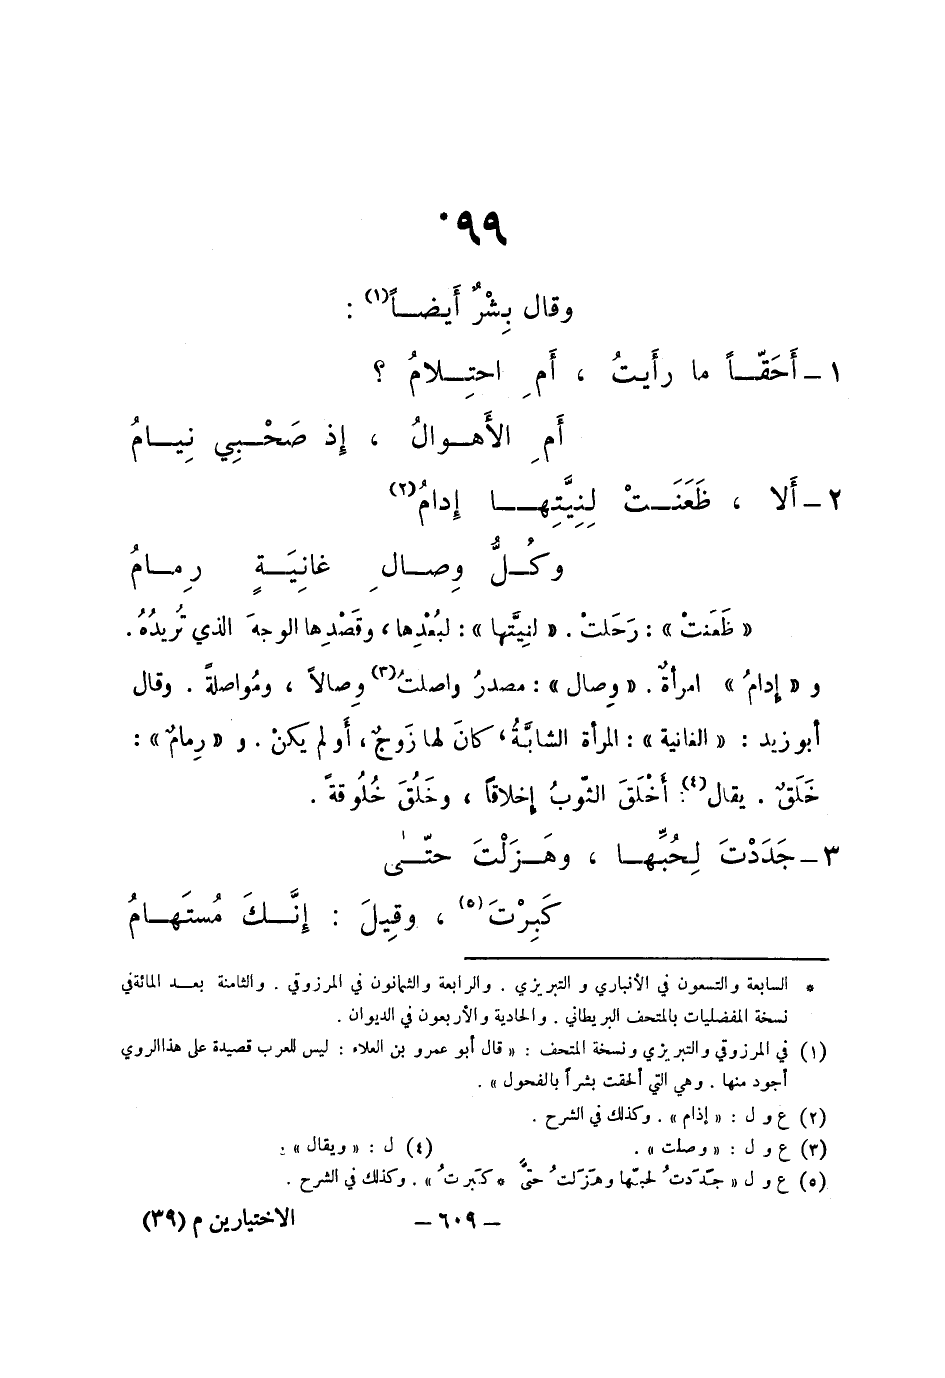 ٩٩*
وقال بِشْرٌ أَيضــاً(١) :
١ ـ أَحَقّــاً ما رأَيتُ ، أَمِ احتِــلامُ ؟
أَمِ الأَهــوالُ ، إِذ صَحْــبِي نِيــامُ
٢ ـ أَلا ، ظَعَنَــتْ لِنِيَّتِهــا إِدامُ(٢)
وكُــلُّ وِصــالِ غانِيَــةٍ رِمــامُ
« ظَعَنتْ » : رَحَلتْ . « لنِيَّتها » : لبُعْدِها ، وقَصْدِها الوجهَ الذي تُريدُهُ .
و « إِدامُ » امرأةٌ . « وِصال » : مصدرُ واصلتُ(٣) وِصالاً ، ومُواصلةً . وقال
أبو زيد : « الغانية » : المرأة الشابَّةُ ، كانَ لها زَوجٌ ، أَو لم يكنْ . و « رِمامٌ » :
خَلَقٌ . يقال(٤) : أَخْلَقَ الثّوبُ إِخلاقاً ، وخَلُقَ خُلُوقةً .
٣ ـ جَدَدْتَ لِحُبِّهــا ، وهَــزَلْتَ حتّــى
كَبِرْتَ(٥) ، وقِيلَ : إِنَّــكَ مُستَهــامُ
* السابعة والتسعون في الأنباري و التبريزي . والرابعة والثمانون في المرزوقي . والثامنة بعــد المائة في
نسخة المفضليات بالمتحف البريطاني . والحادية والأربعون في الديوان .
(١) في المرزوقي والتبريزي ونسخة المتحف : « قال أبو عمرو بن العلاء : ليس للعرب قصيدة على هذا الروي
أجود منها . وهي التي ألحقت بشراً بالفحول » .
(٢) ع و ل : « إذام » . وكذلك في الشرح .
(٣) ع و ل : « وصلت » . (٤) ل : « ويقال » .
(٥) ع و ل « جَدَدتُ لحبّها وهَزَلتُ حتىّ * كَبَرتُ » . وكذلك في الشرح .
ـ ٦٠٩ ـ الاختيارين م (٣٩)